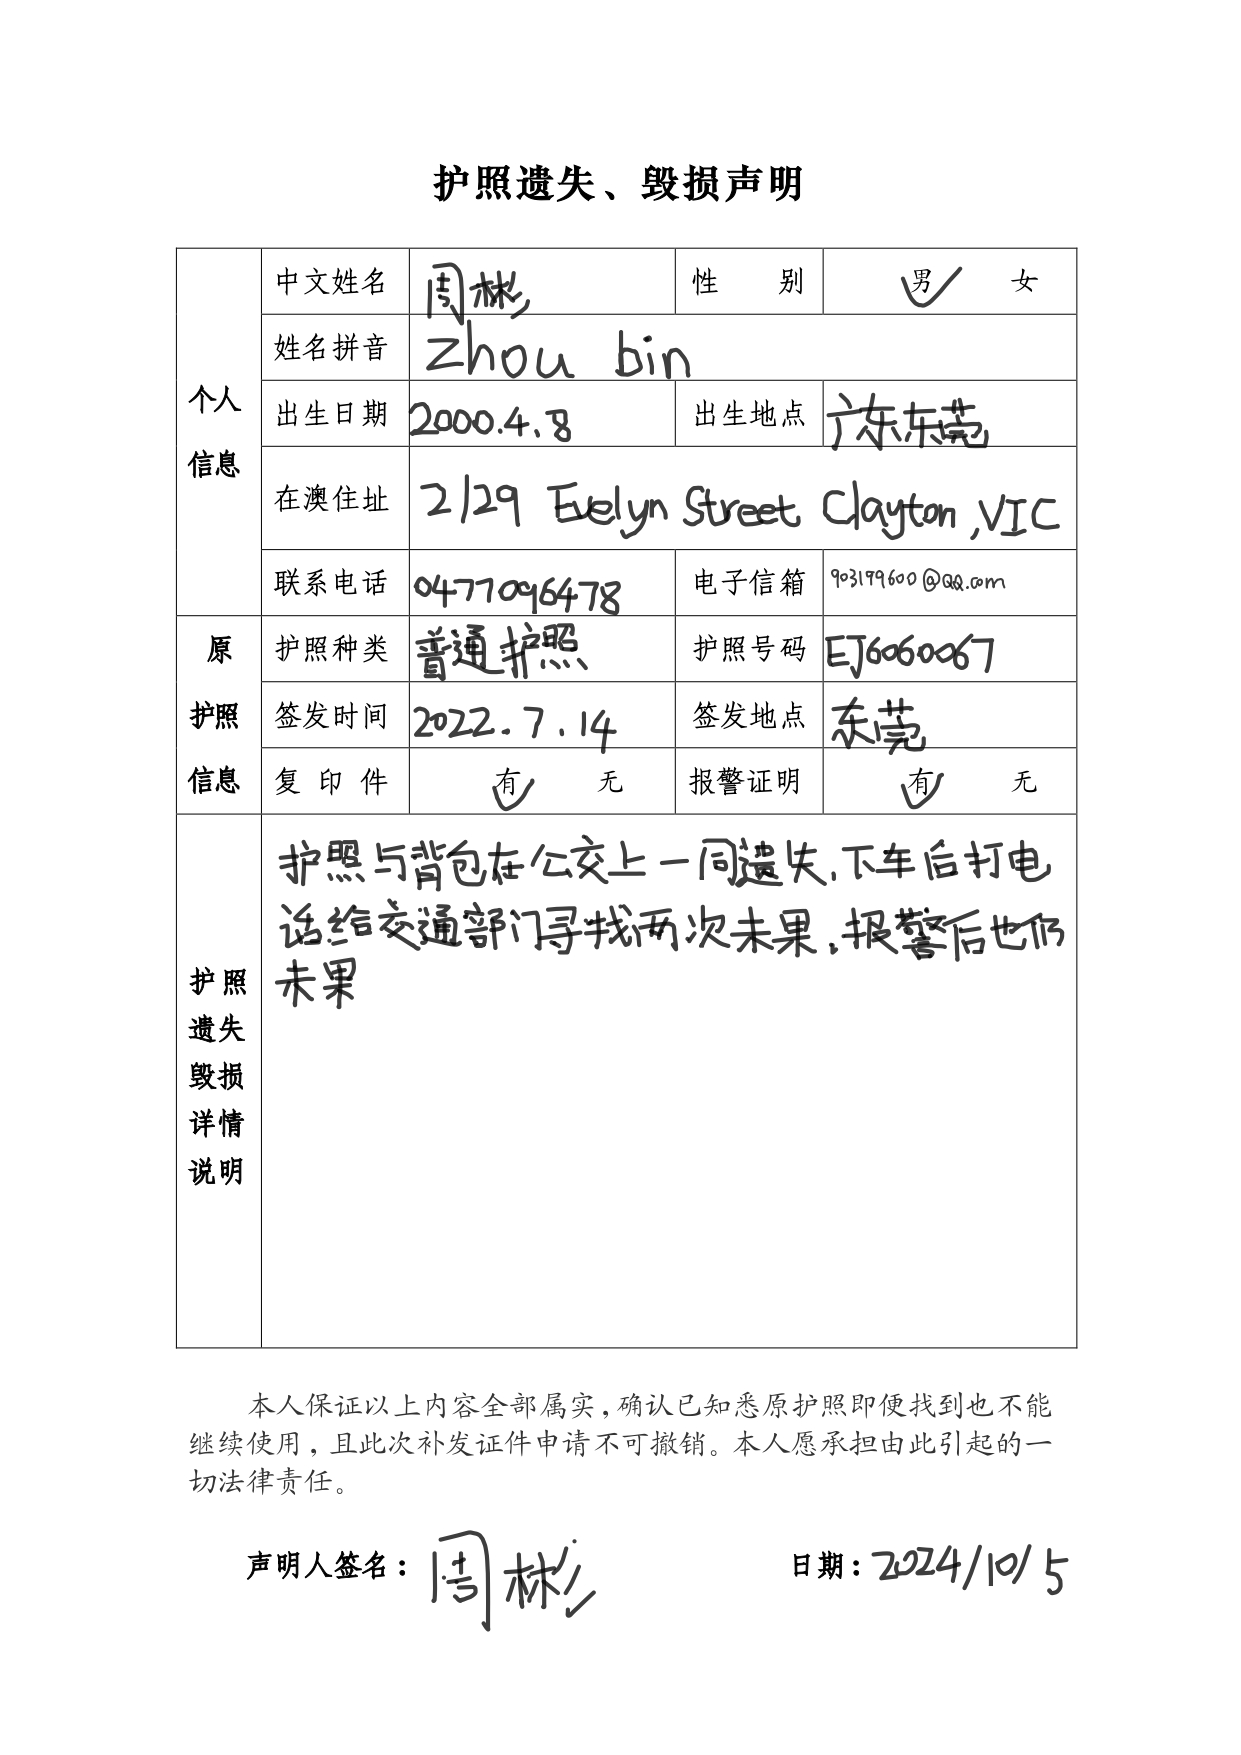 护照遗失、毁损声明
个人信息
中文姓名 周彬 性别 男 女
姓名拼音 Zhou bin
出生日期 2000.4.8 出生地点 广东东莞
在澳住址 2/29 Evelyn Street Clayton,VIC
联系电话 0477096478 电子信箱 903199600@QQ.com
原护照信息
护照种类 普通护照 护照号码 EJ6060067
签发时间 2022.7.14 签发地点 东莞
复印件 有 无 报警证明 有 无
护照遗失毁损详情说明
护照与背包在公交上一同遗失,下车后打电
话给交通部门寻找两次未果,报警后也仍
未果
本人保证以上内容全部属实,确认已知悉原护照即便找到也不能
继续使用,且此次补发证件申请不可撤销。本人愿承担由此引起的一
切法律责任。
声明人签名:周彬 日期:2024/10/5